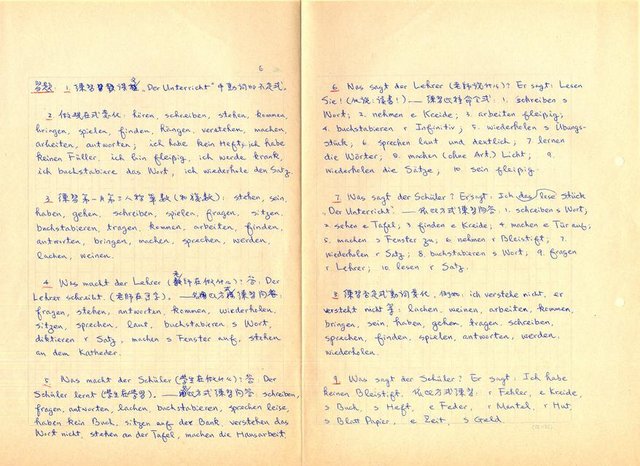 6
習題: 1. 練習 課 „Der Unterricht" 中動詞的不定式.
2. 做現在式變化: hören, schreiben, stehen, kommen,
bringen, spielen, finden, hängen, verstehen, machen,
arbeiten, antworten; ich habe kein Heft, ich habe
keinen Füller. ich bin fleißig, ich werde krank,
ich buchstabiere das Wort, ich wiederhole den Satz
3. 練習第一及第三人稱單數(和複數): stehen, sein,
haben, gehen, schreiben, spielen, fragen, sitzen,
buchstabieren, tragen, kommen, arbeiten, finden,
antworten, bringen, machen, sprechen, werden,
lachen, weinen.
4. Was macht der Lehrer (老師在做什么)? 答: Der
Lehrer schreibt (老師在寫字), — 方式練習問答:
fragen, stehen, antworten, kommen, wiederholen,
sitzen, sprechen, laut, buchstabieren s Wort,
diktieren r Satz, machen s Fenster auf, stehen
an dem Katheder.
5. Was machet der Schüler (學生在做什么)? 答: Der
Schüler lernt (學生在學習), — 方式練習問答 schreiben,
fragen, antworten, lachen, buchstabieren, sprechen leise,
haben kein Buch, sitzen auf der Bank verstehen das
Wort nicht, stehen an der Tafel, machen die Hausarbeit.
6. Was sagt der Lehrer (老師說什么)? Er sagt: Lesen
Sie! (他說: 讀書!). — 練習以上命令式: 1. schreiben s
Wort; 2. nehmen e Kreide; 3. arbeiten fleißig;
4. buchstabieren r Infinitiv; 5. wiederholen s Übungs-
stück; 6. sprechen laut und deutlich; 7. lernen
die Wörter; 8. machen (ohne Art.) Licht; 9.
wiederholen die Sätze; 10. sein fleißig.
7. Was sagt der Schüler? Er sagt: Ich lese das Stück
„Der Unterricht". — 依此方式練習問答: 1. schreiben s Wort;
2. sehen e Tafel; 3. finden e Kreide; 4. machen e Tür auf;
5. machen s Fenster zu; 6. nehmen r Bleistift; 7.
wiederholen r Satz. 8. buchstabieren s Wort; 9. fragen
r Lehrer; 10. lesen r Satz.
8. 練習否定式動詞變化, 例如: ich verstehe nicht, er
versteht nicht 等: lachen, weinen, arbeiten, kommen,
bringen, sein, haben, gehen, tragen, schreiben,
sprechen, finden, spielen, antworten, werden,
wiederholen.
9. Was sagt der Schüler? Er sagt: Ich habe
keinen Bleistift. 依此方式練習: r Fehler, e Kreide,
s Buch, s Heft, e Feder, r Mantel, r Hut,
s Blatt Papier, e Zeit, s Geld.